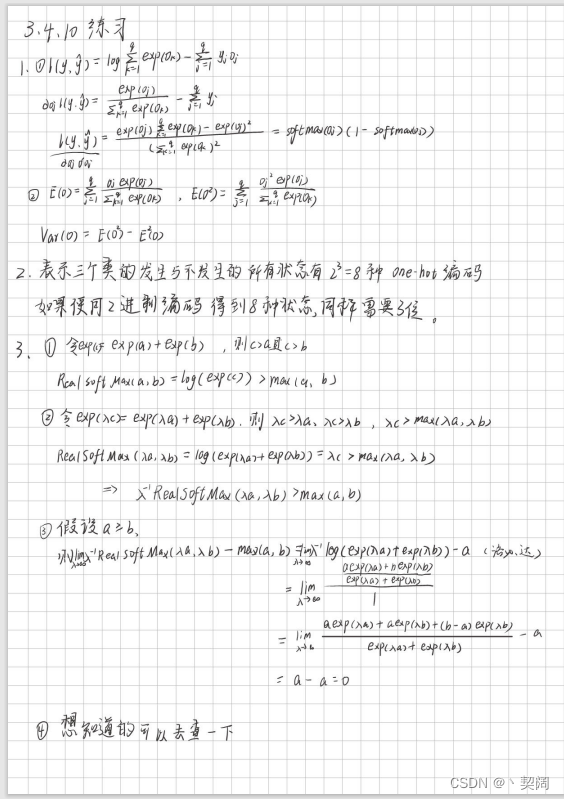 3.4.10 练习
1. ① l(y,ŷ) = log Σ_{k=1}^{q} exp(o_k) - Σ_{j=1}^{q} y_j o_j
∂_{oj} l(y,ŷ) = exp(o_j) / Σ_{k=1}^{q} exp(o_k) - Σ_{j=1}^{q} y_j
l(y,ŷ) / ∂oj ∂oj = (exp(o_j) Σ_{k=1}^{q} exp(o_k) - exp(o_j)²) / (Σ_{k=1}^{q} exp(o_k))² = softmax(o_j)(1 - softmax(o_j))
② E(O) = Σ_{j=1}^{q} o_j exp(o_j) / Σ_{k=1}^{q} exp(o_k) , E(O²) = Σ_{j=1}^{q} o_j² exp(o_j) / Σ_{k=1}^{q} exp(o_k)
Var(O) = E(O²) - E²(O)
2. 表示三个类的发生与不发生的所有状态有 2³=8 种 one-hot 编码
如果使用2进制编码得到8种状态,同样需要3位。
3. ① 令exp(c) = exp(a) + exp(b) , 则 c>a且c>b
RealSoftMax(a,b) = log(exp(c)) > max(a,b)
② 令 exp(λc) = exp(λa) + exp(λb). 则 λc>λa、λc>λb , λc > max(λa, λb)
RealSoftMax(λa, λb) = log(exp(λa)+exp(λb)) = λc > max(λa, λb)
⇒ λ⁻¹RealSoftMax(λa,λb) > max(a,b)
③ 假设 a≥b,
则 lim_{λ→∞} λ⁻¹RealSoftMax(λa,λb) - max(a,b) = lim_{λ→∞} λ⁻¹ log(exp(λa)+exp(λb)) - a (洛必达)
= lim_{λ→∞} ((a exp(λa) + b exp(λb)) / (exp(λa) + exp(λb))) / 1
= lim_{λ→∞} (a exp(λa) + a exp(λb) + (b-a) exp(λb)) / (exp(λa) + exp(λb)) - a
= a - a = 0
④ 想知道的可以去查一下
CSDN @丶契阔